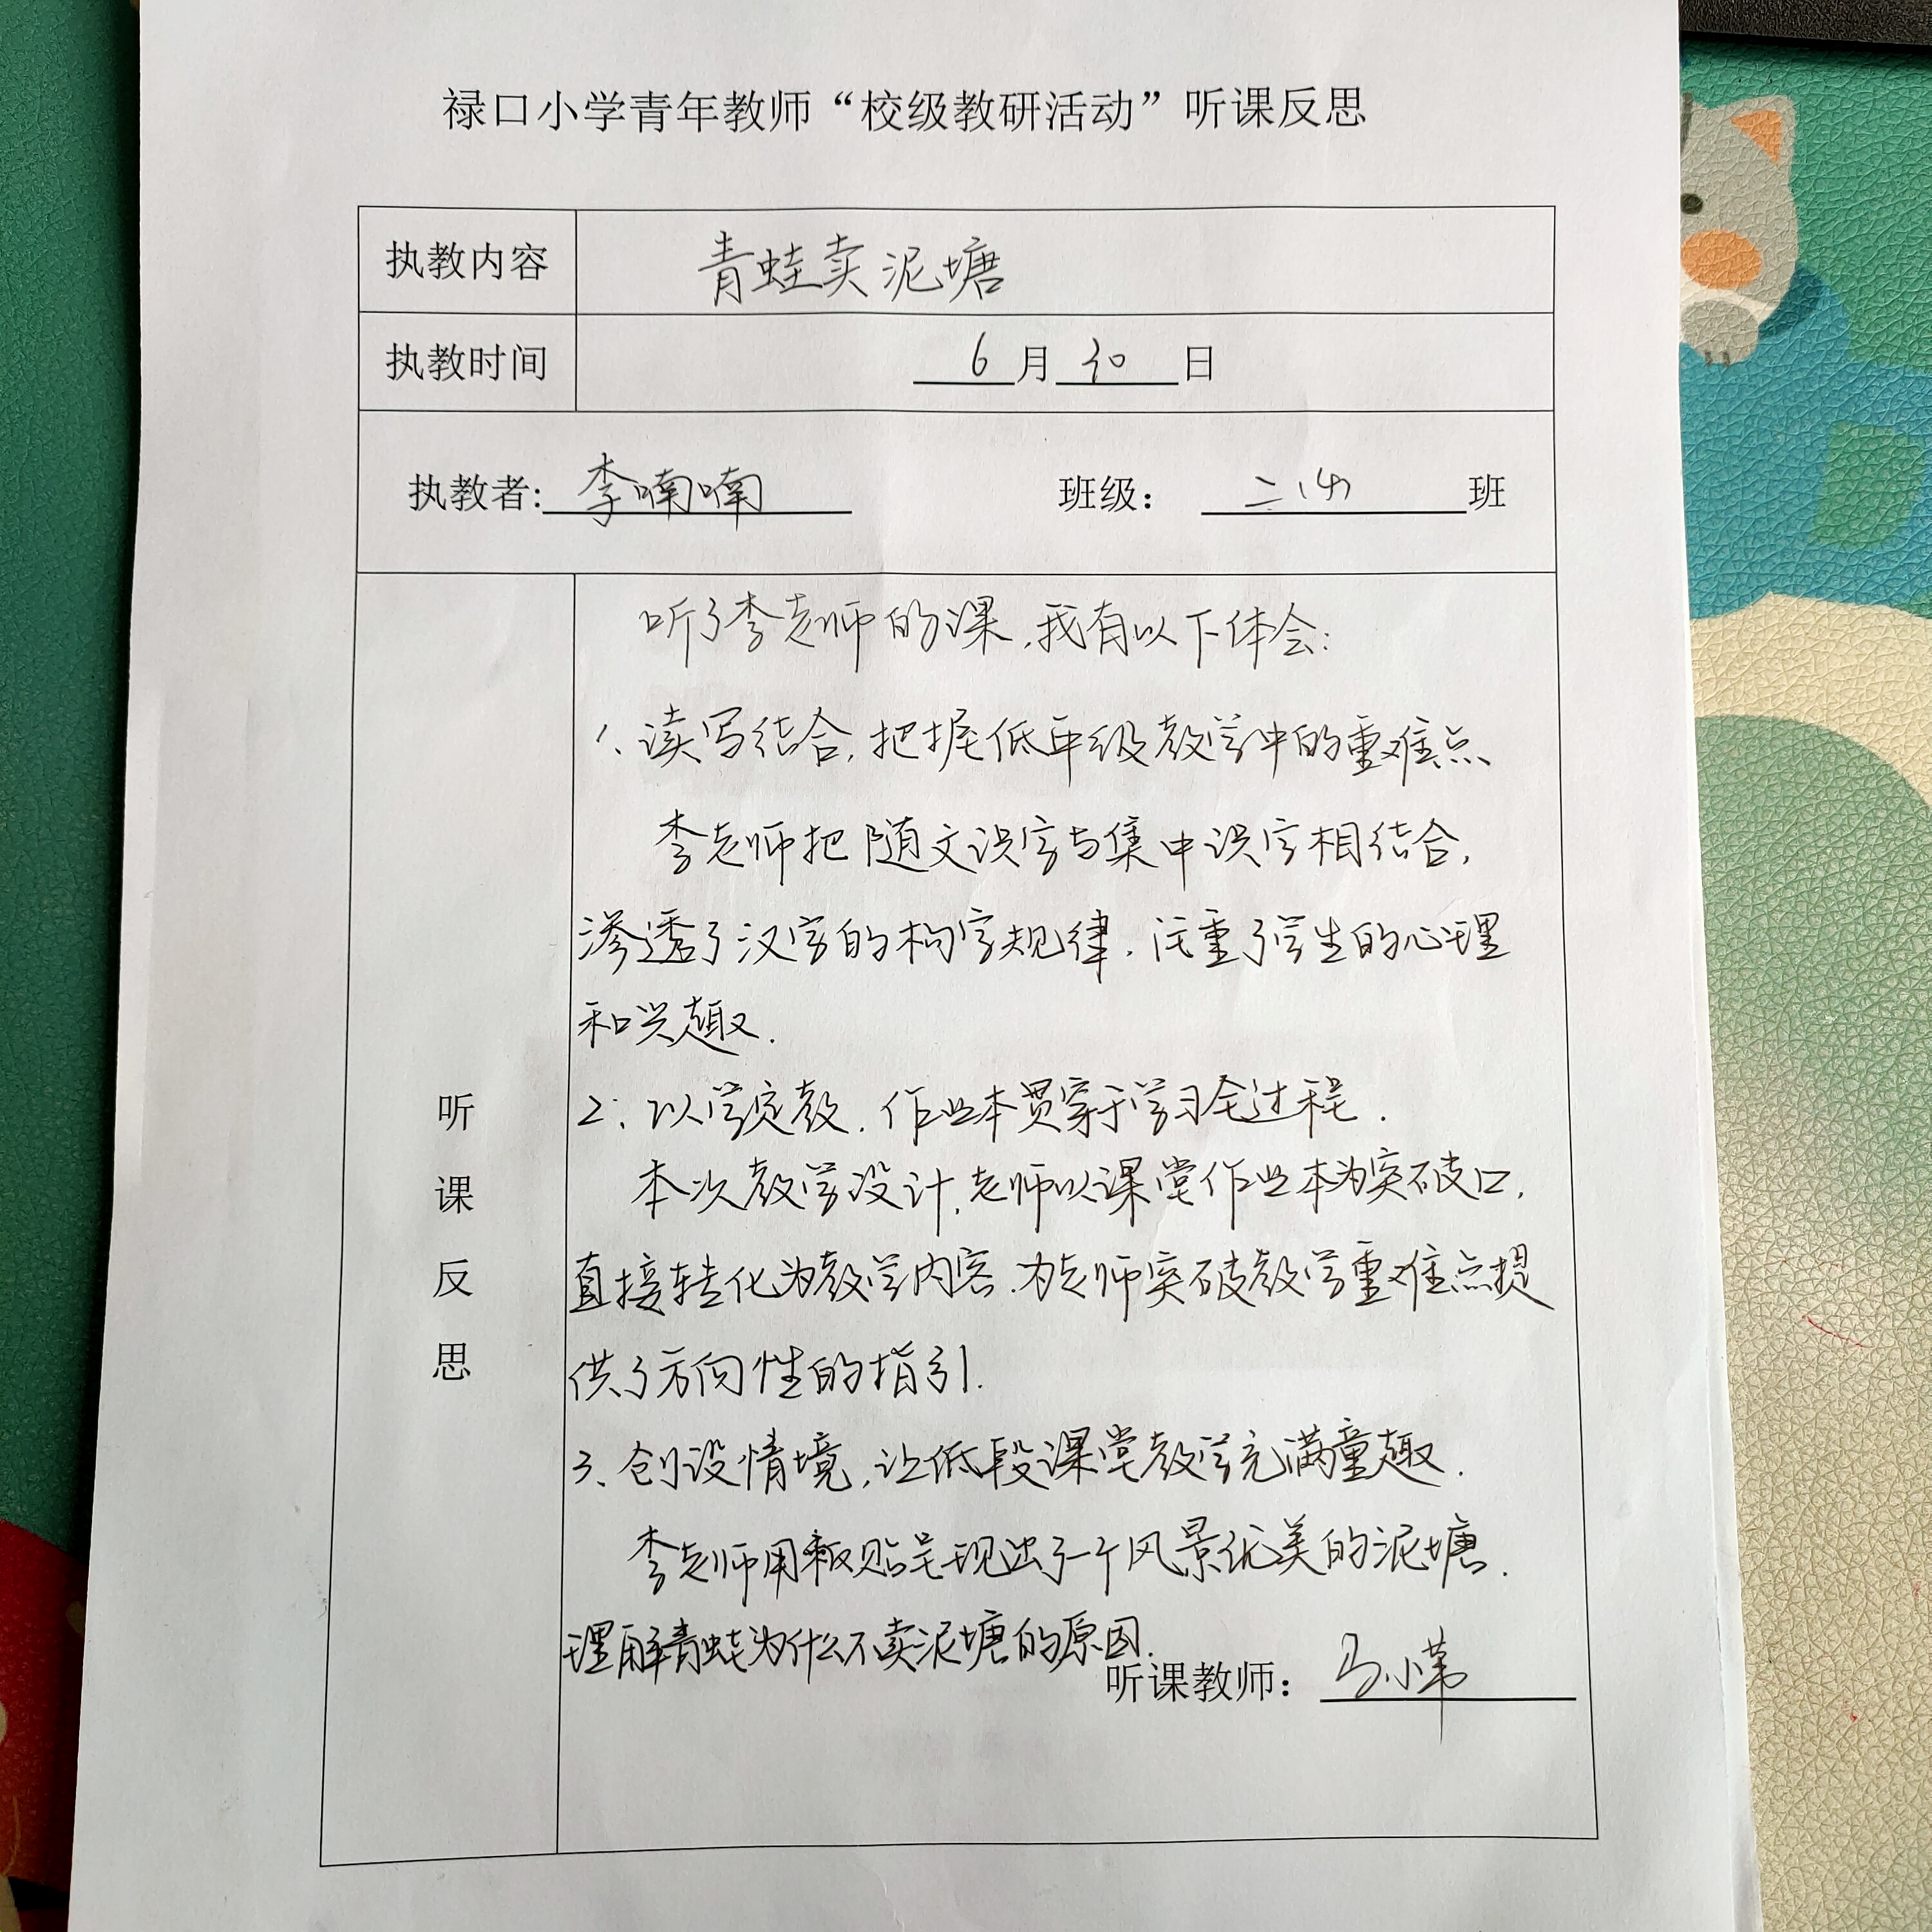 禄口小学青年教师“校级教研活动”听课反思
执教内容 青蛙卖泥塘
执教时间 6月30日
执教者: 李喃喃 班级： 二(4) 班
听课反思
听了李老师的课,我有以下体会:
1、读写结合,把握低年级教学中的重难点
李老师把随文识字与集中识字相结合,
渗透了汉字的构字规律,注重了学生的心理
和兴趣.
2、以学定教.作业本贯穿于学习全过程.
本次教学设计,老师以课堂作业本为突破口,
直接转化为教学内容.为老师突破教学重难点提
供了方向性的指引.
3、创设情境,让低段课堂教学充满童趣.
李老师用板贴呈现出了一个风景优美的泥塘.
理解青蛙为什么不卖泥塘的原因.
听课教师： 马小